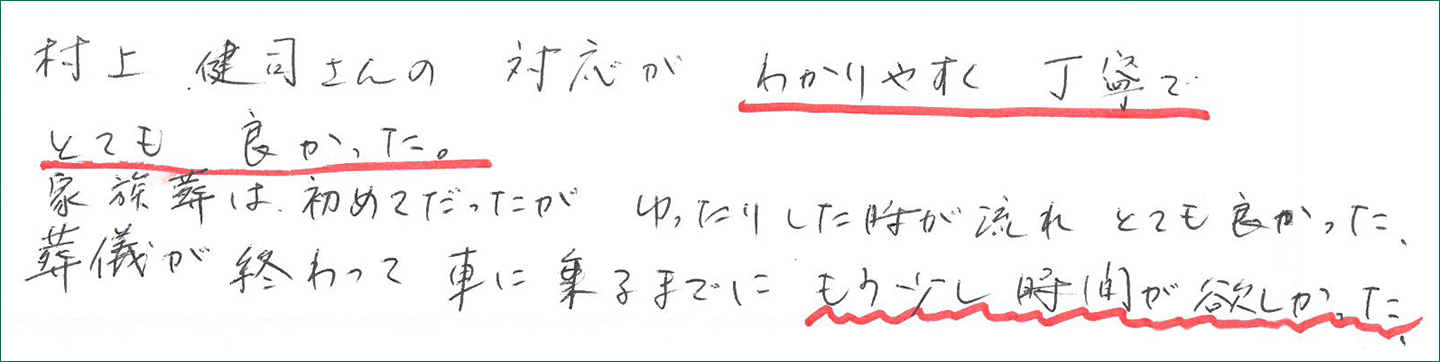 村上 健司さんの 対応が わかりやすく 丁寧で
とても 良かった。
家族葬は、初めてだったが ゆったりした時が流れ とても良かった、
葬儀が 終わって 車に乗るまでに もう少し 時間が欲しかった、